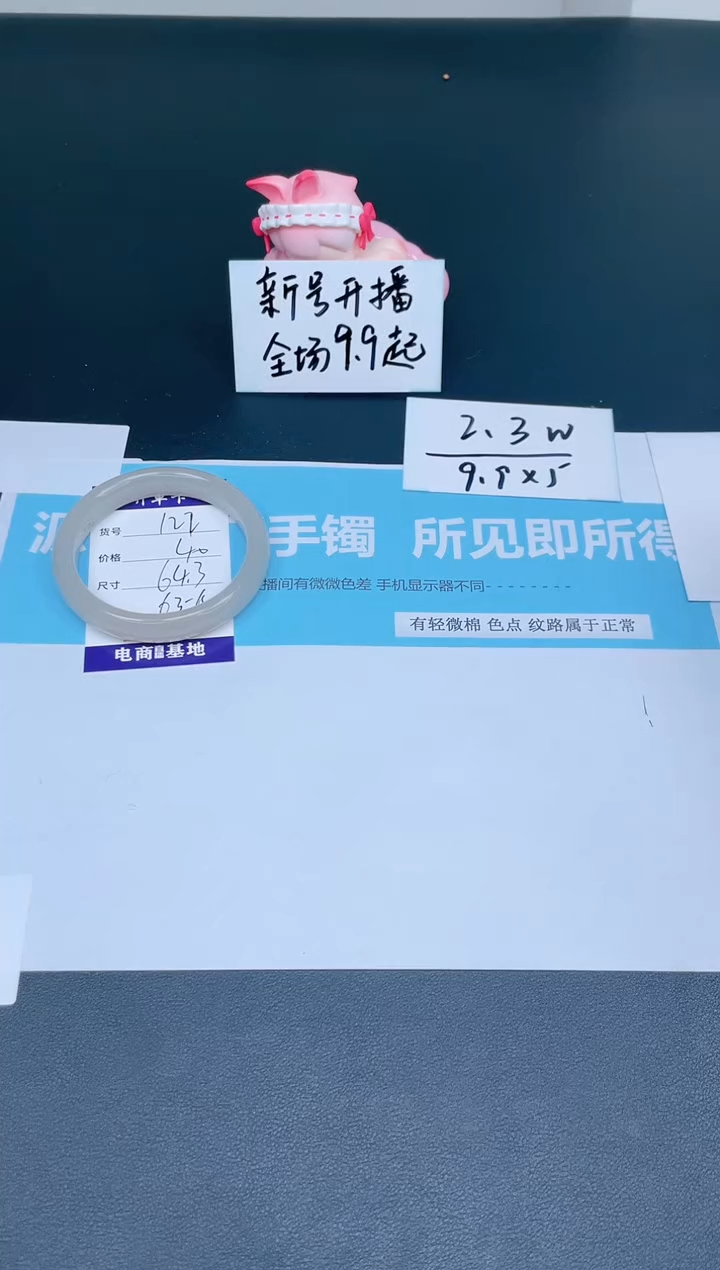 新号开播
全场9.9起
2.3W
9.9x5
手镯 所见即所得
货号
价格 40
尺寸 64.3
播间有微微色差 手机显示器不同--------
有轻微棉 色点 纹路属于正常
电商 基地